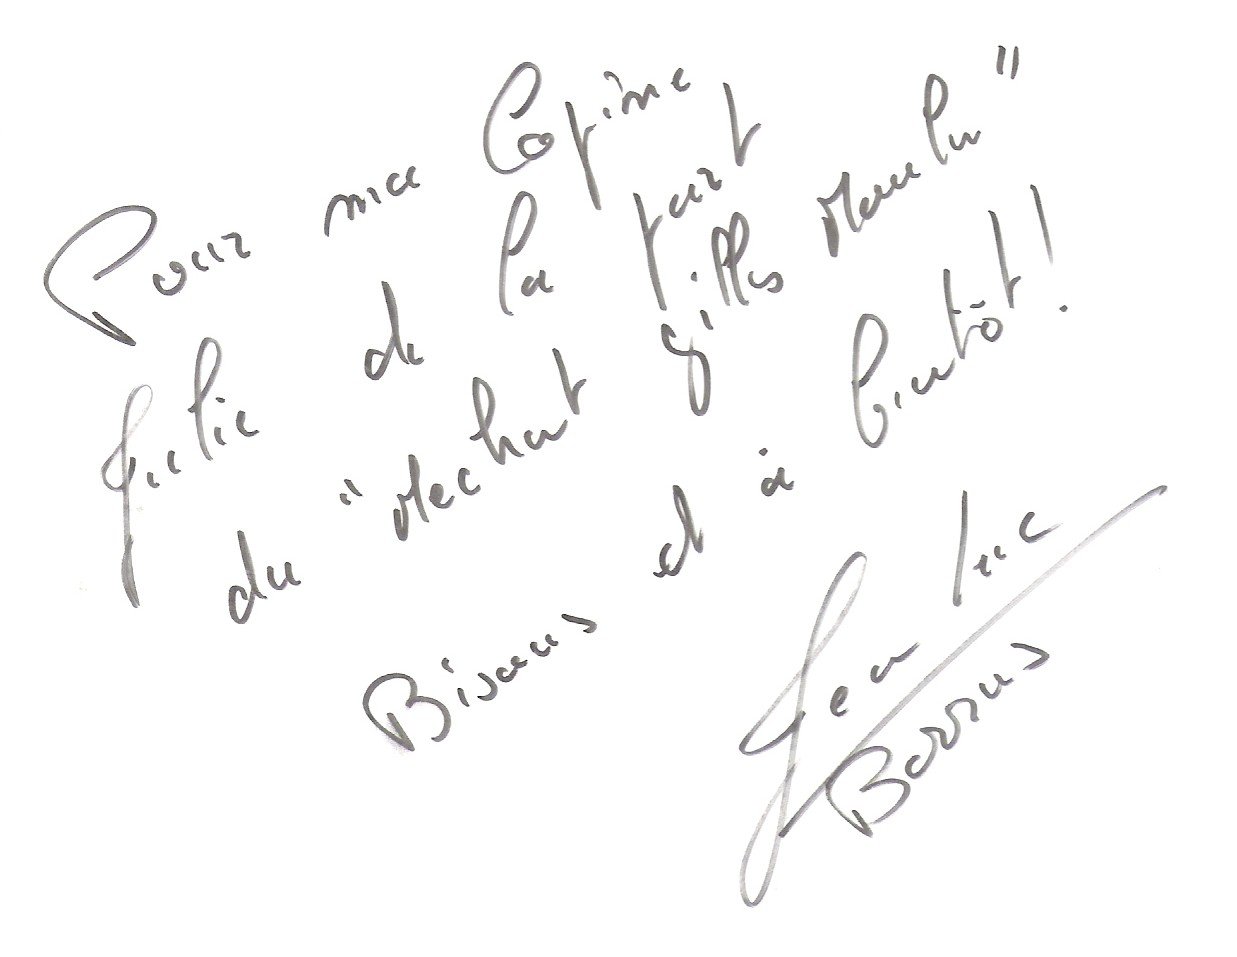 Pour ma Copine
Julie de la part
du "Mechant Gilles "
Bisous et à bientôt !
Jean Luc
Borras